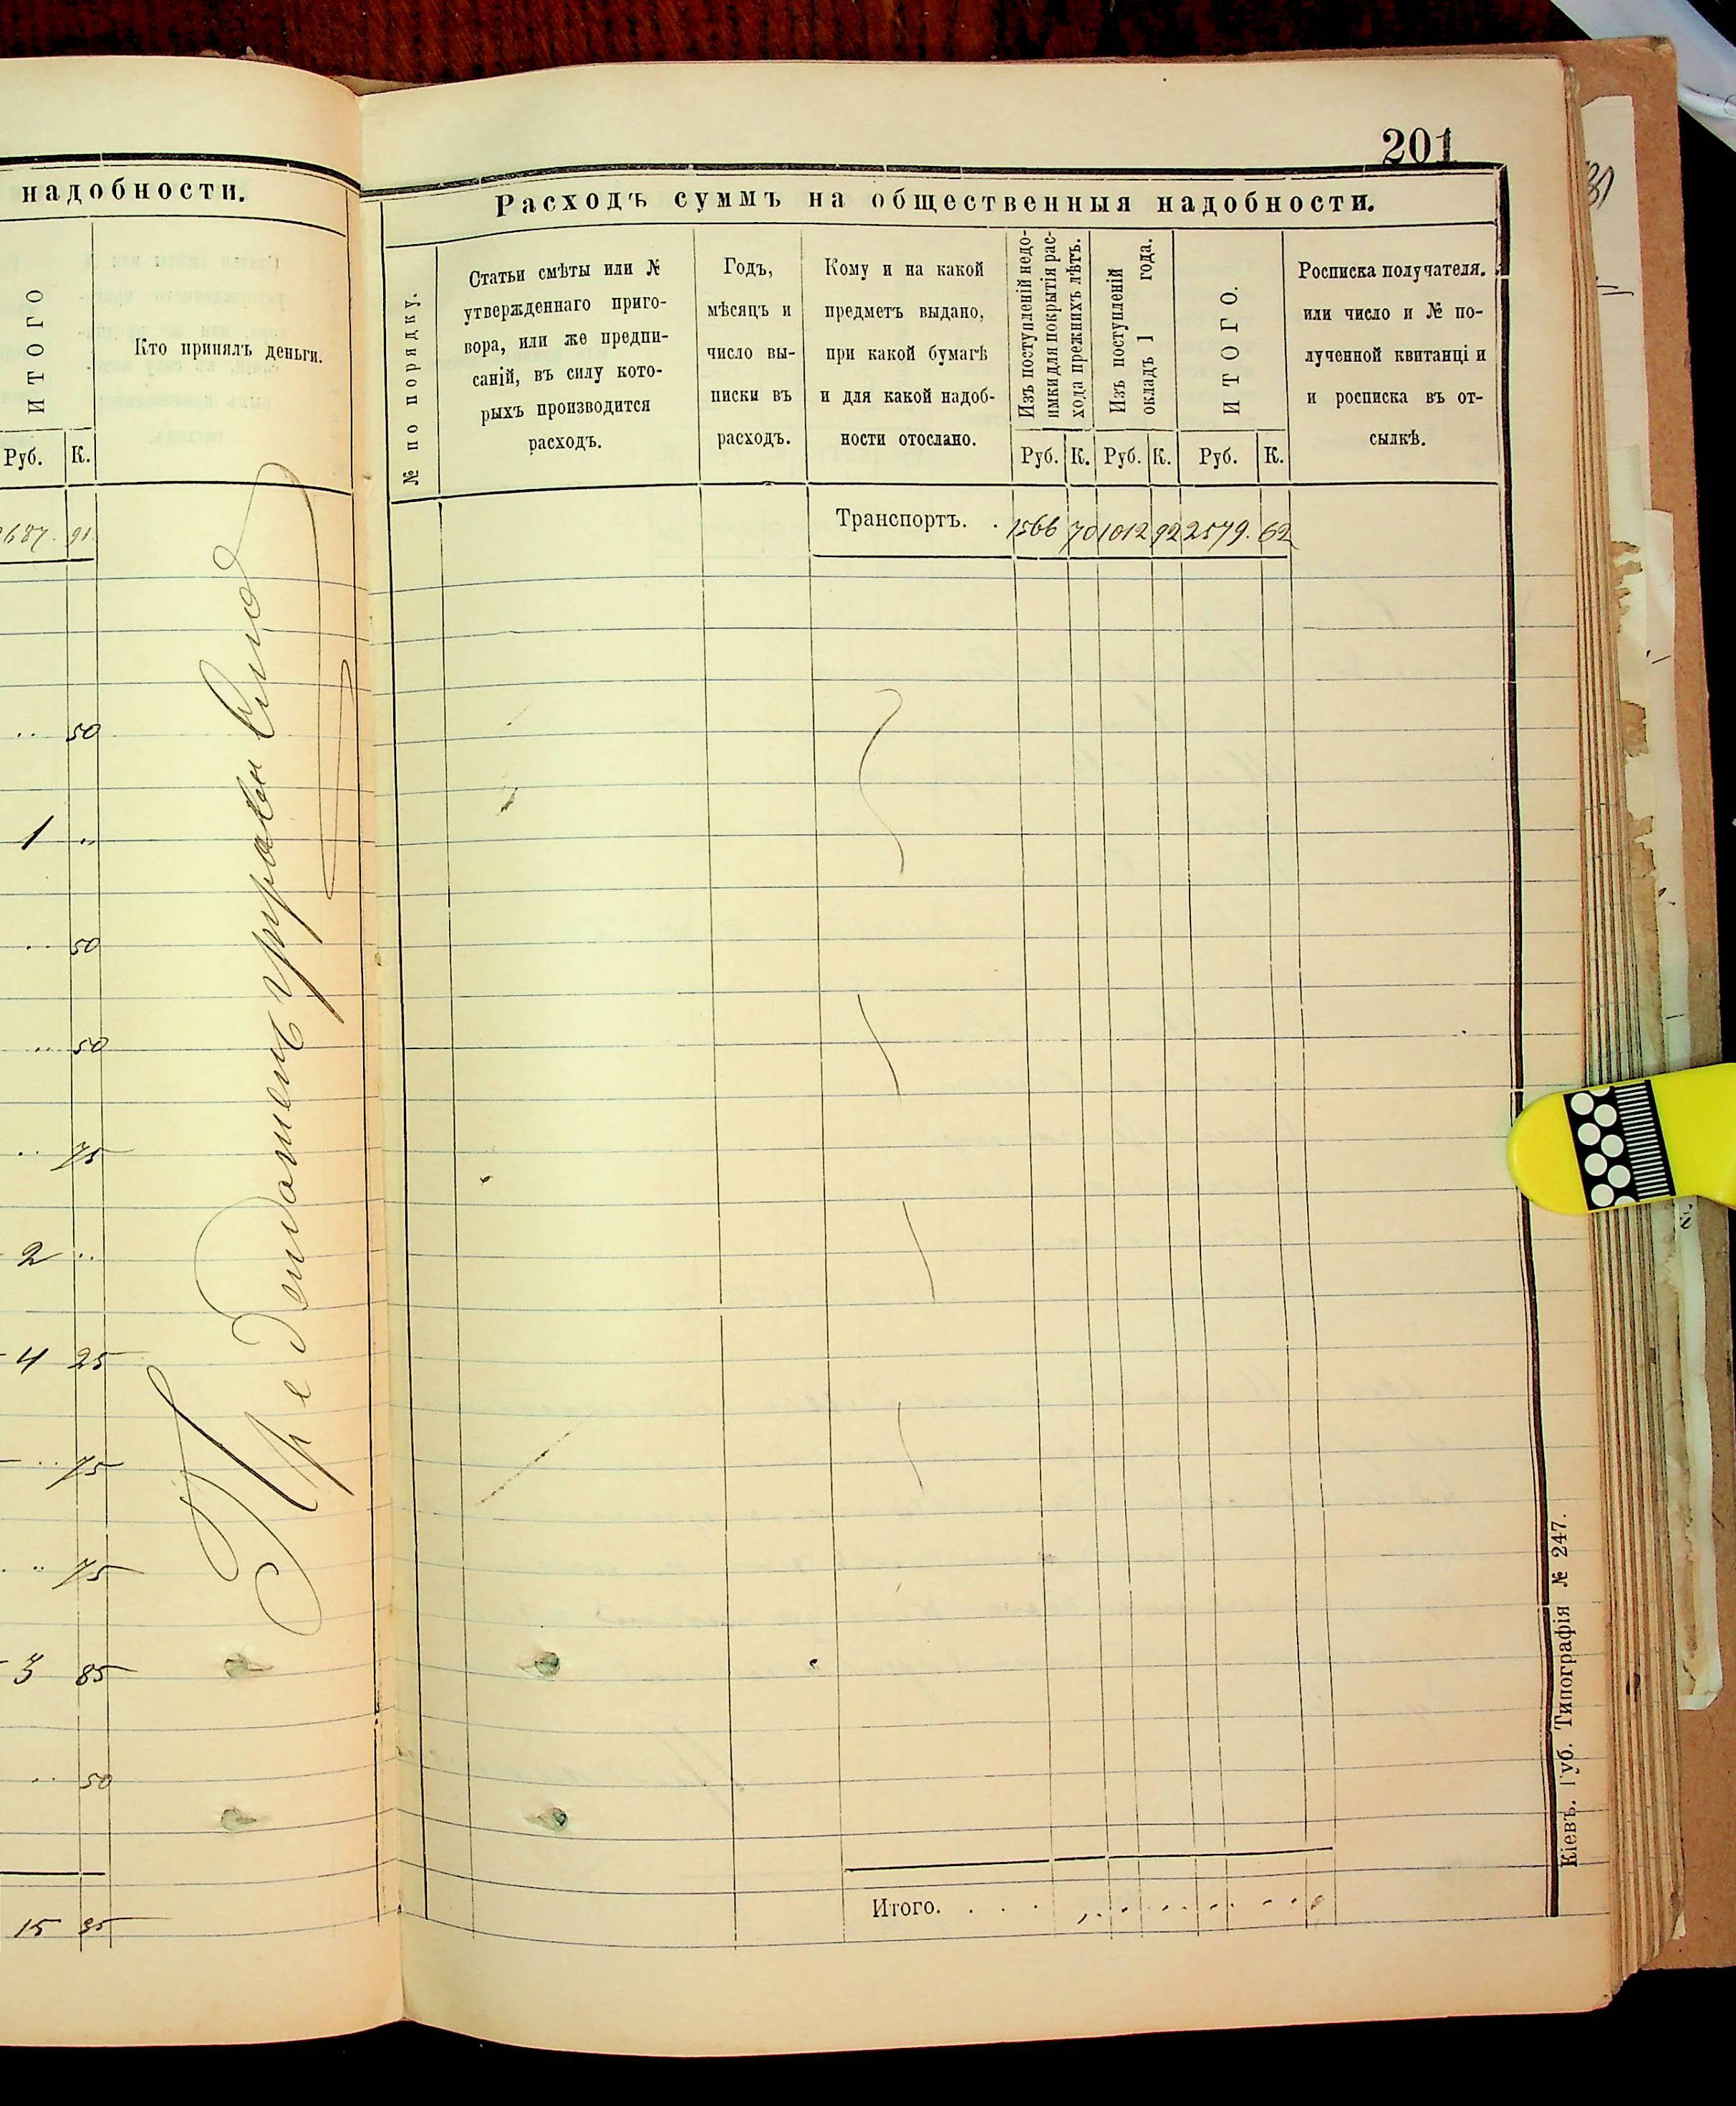 надобности.
ИТОГО
Кто принялъ деньги.
Руб. К.
687. 91
.. 50
1 ..
.. 50
.. 50
.. 75
2 ..
4 25
.. 75
.. 75
3 85
.. 50
15 35
201
Расходъ суммъ на общественныя надобности.
№ по порядку.
Статьи смѣты или №
утвержденнаго приго-
вора, или же предпи-
саній, въ силу кото-
рыхъ производится
расходъ.
Годъ,
мѣсяцъ и
число вы-
писки въ
расходъ.
Кому и на какой
предметъ выдано,
при какой бумагѣ
и для какой надоб-
ности отослано.
Изъ поступленій недо-
имки для покрытія рас-
хода прежнихъ лѣтъ.
Изъ поступленій
окладъ 1 года.
ИТОГО.
Росписка получателя.
или число и № по-
лученной квитанціи
и росписка въ от-
сылкѣ.
Руб. К. Руб. К. Руб. К.
Транспортъ. . 1566 70 1012 92 2579. 62
Итого. . . .
Кіевъ. Губ. Типографія № 247.